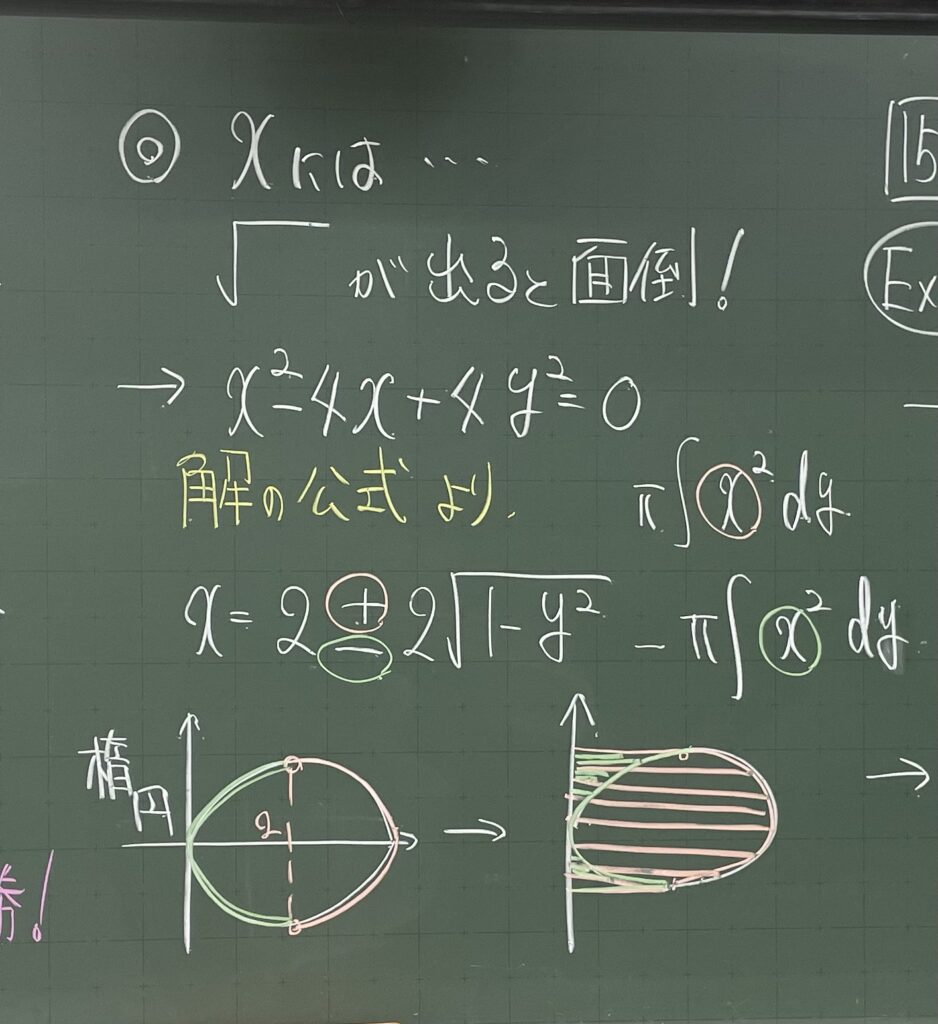 ◎ xには…
√ が出ると面倒!
→ x²-4x+4y²=0
解の公式より.
π∫x²dy
x=2±2√1-y² -π∫x²dy
楕円
2
→
→
15
Ex
!